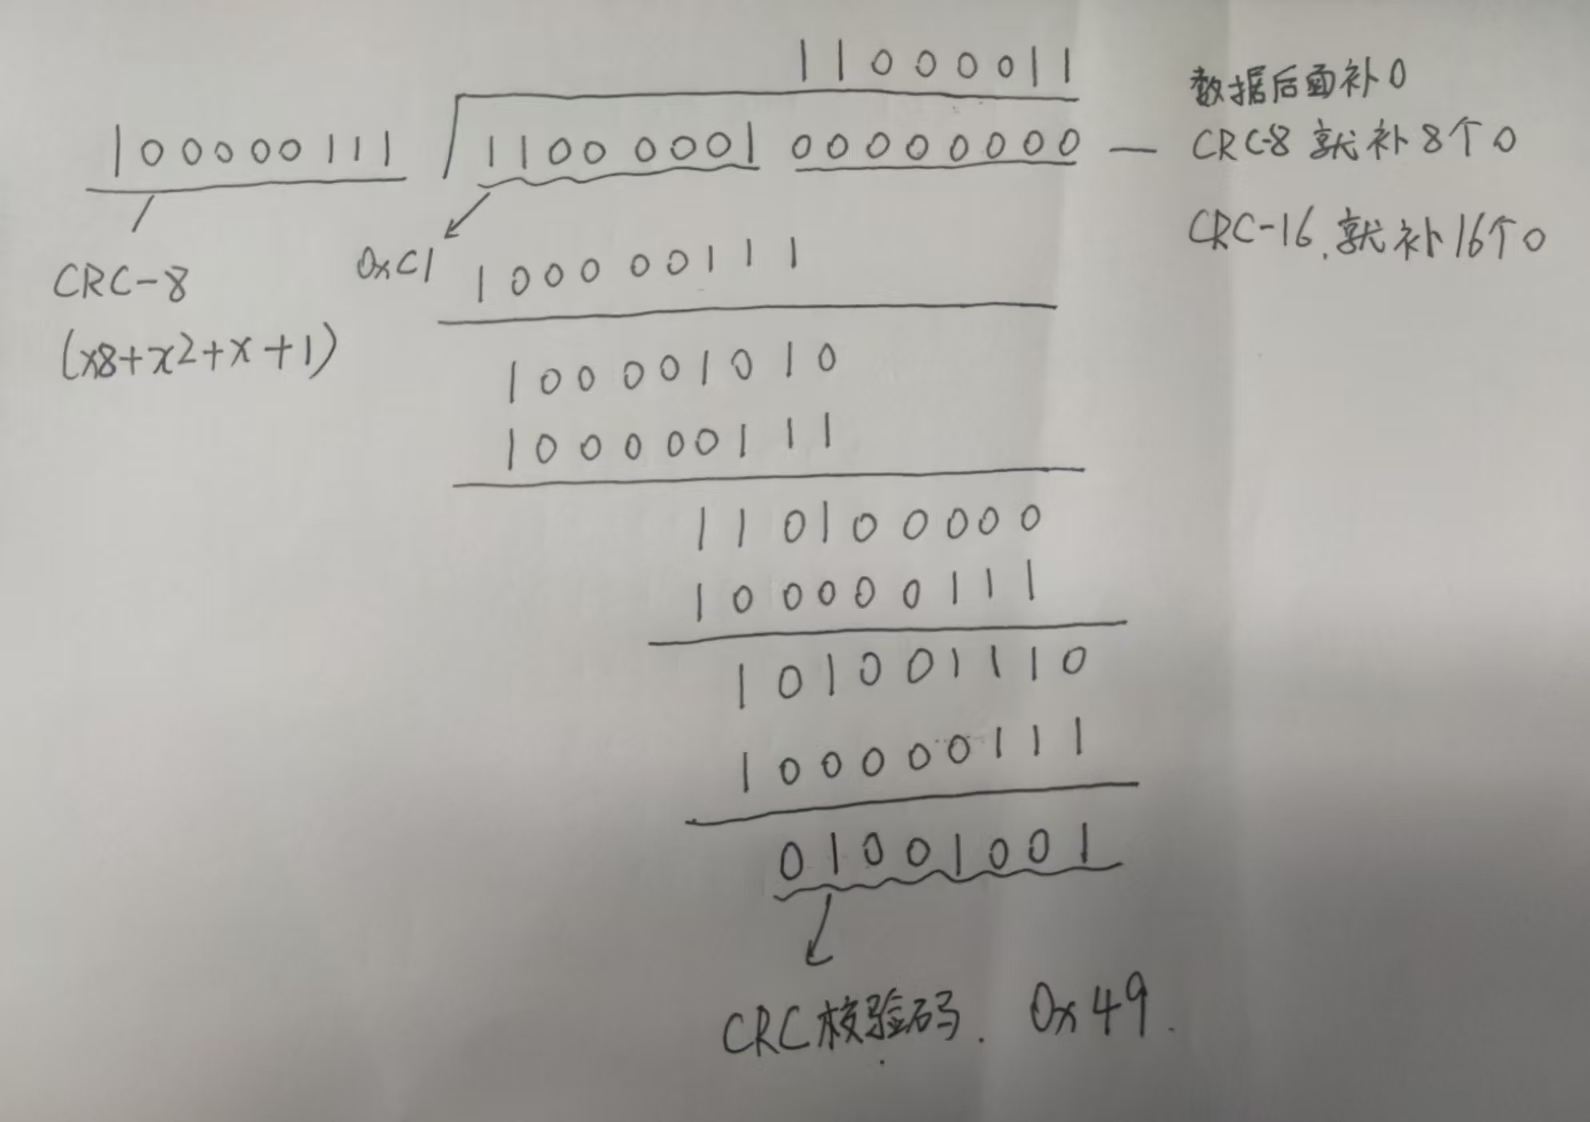 11000011
数据后面补0
100000111 11000001 00000000 — CRC-8 就补8个0
CRC-16.就补16个0
0xC1
100000111
CRC-8
(x8+x2+x+1)
100001010
100000111
110100000
100000111
101001110
100000111
01001001
CRC校验码. 0x49.